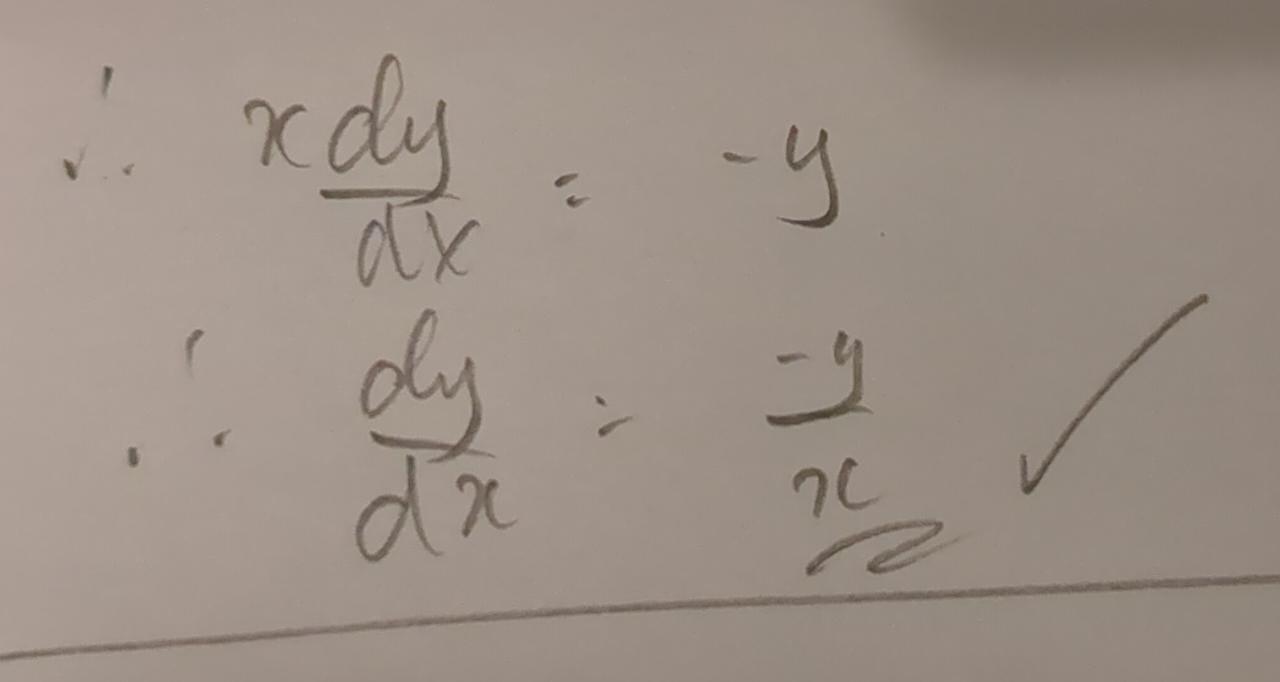 ∴ x dy/dx = -y
∴ dy/dx = -y/x ✓